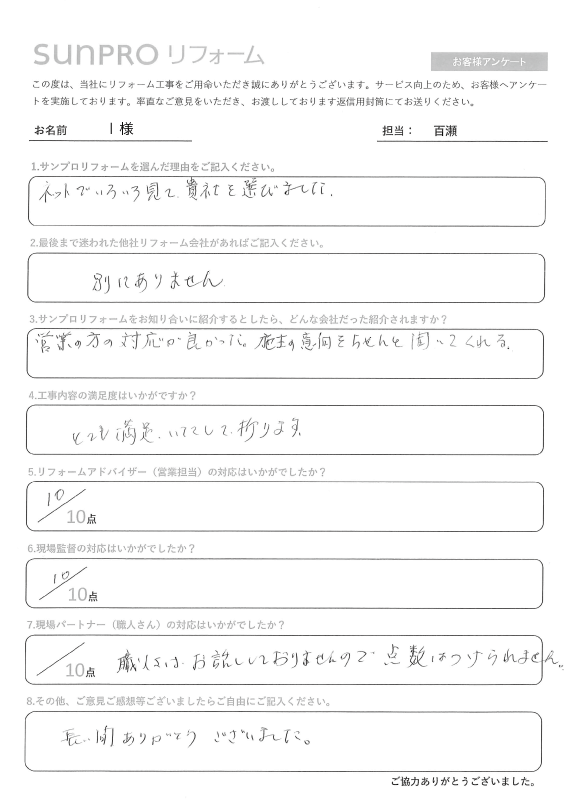 SUNPRO リフォーム
お客様アンケート
この度は、当社にリフォーム工事をご用命いただき誠にありがとうございます。サービス向上のため、お客様へアンケー
トを実施しております。率直なご意見をいただき、お渡ししております返信用封筒にてお送りください。
お名前 I 様 担当： 百瀬
1.サンプロリフォームを選んだ理由をご記入ください。
ネットでいろいろ見て、貴社を選びました。
2.最後まで迷われた他社リフォーム会社があればご記入ください。
別にありません
3.サンプロリフォームをお知り合いに紹介するとしたら、どんな会社だった紹介されますか？
営業の方の対応が良かった。施主の意向をちゃんと聞いてくれる。
4.工事内容の満足度はいかがですか？
とても満足 いたして 折ります
5.リフォームアドバイザー（営業担当）の対応はいかがでしたか？
10/10点
6.現場監督の対応はいかがでしたか？
10/10点
7.現場パートナー（職人さん）の対応はいかがでしたか？
/10点 職人さんは、お話ししておりませんので 点数はつけられません。
8.その他、ご意見ご感想等ございましたらご自由にご記入ください。
長い間ありがとうございました。
ご協力ありがとうございました。